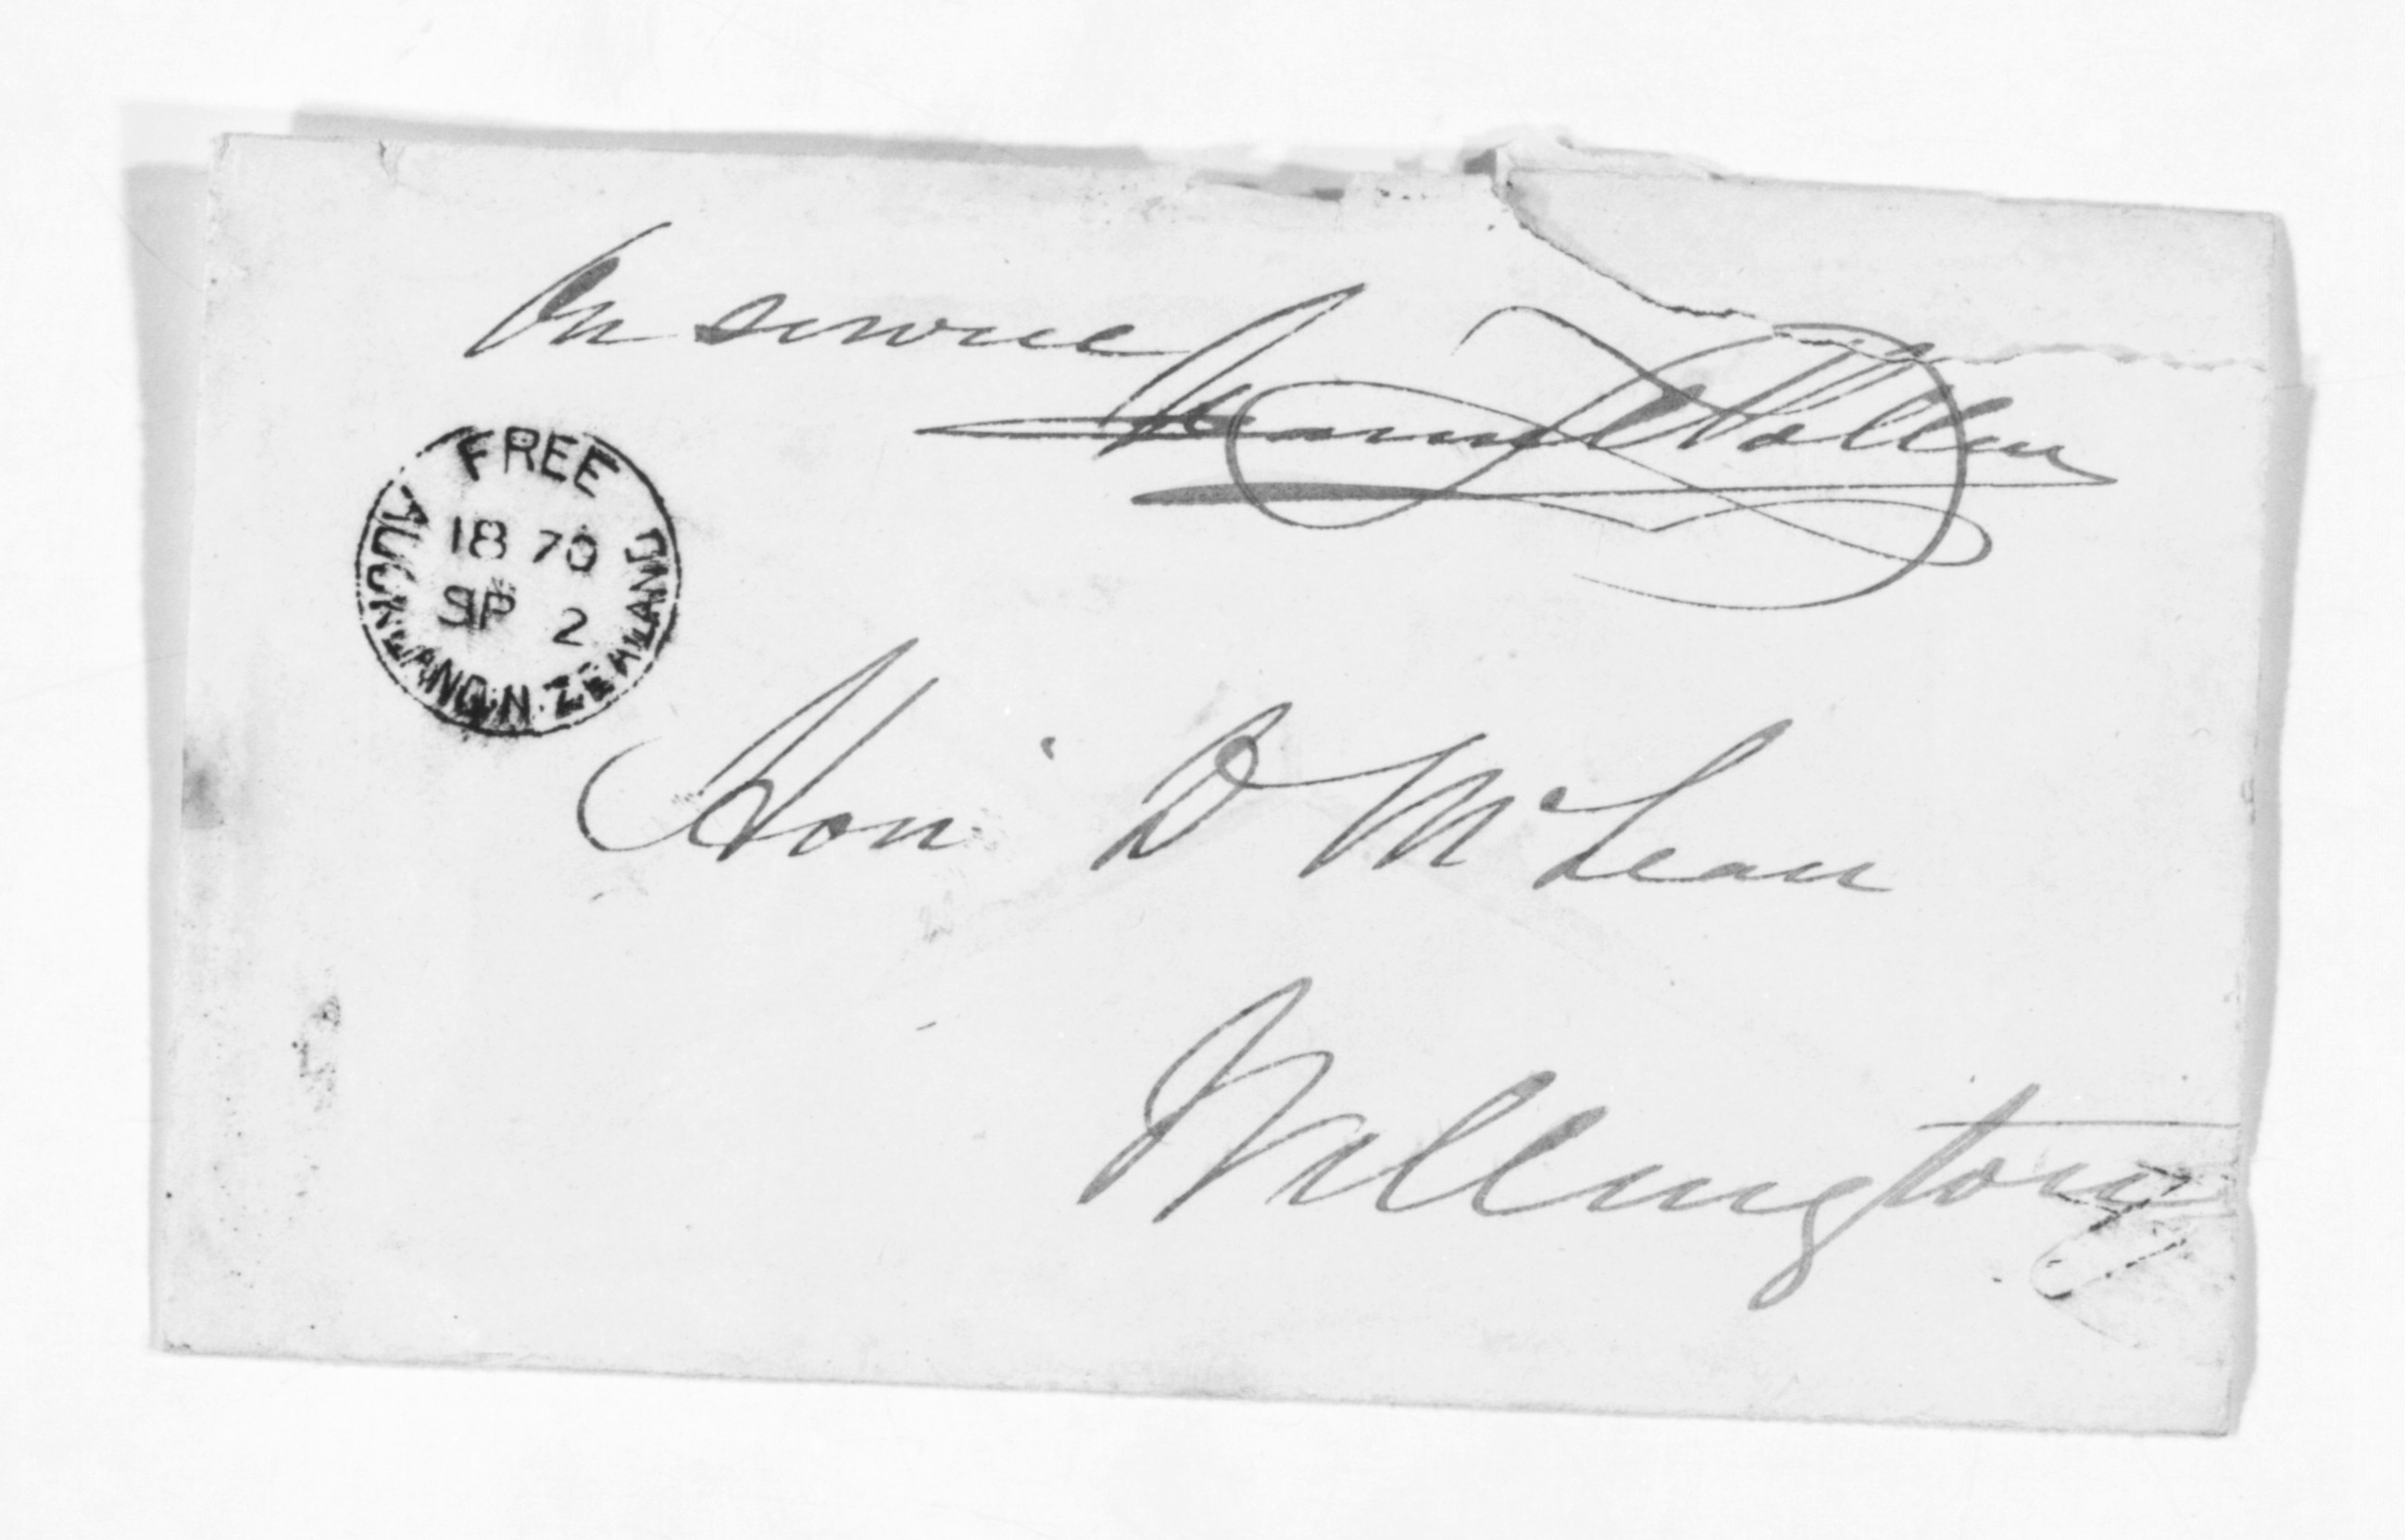 On service
Daniel Pollen
FREE
18 70
SP 2
AUCKLAND N. ZEALAND
Hon. D McLean
Wellington